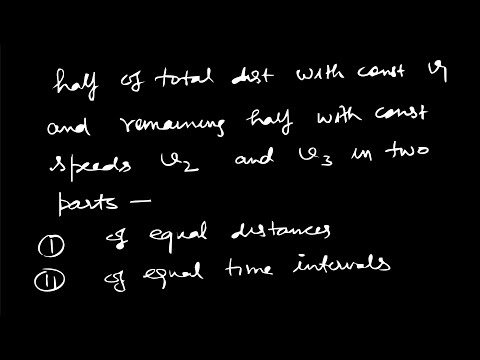 half of total dist with const v1
and remaining half with const
speeds v2 and v3 in two
parts —
① of equal distances
② of equal time intervals